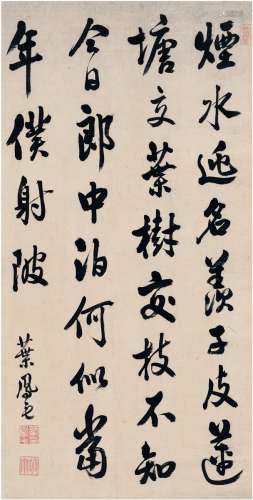 煙水逃名羨子皮蓮
塘交葉樹交枝不知
今日郎中泊何似當
年僕射陂
葉鳳毛